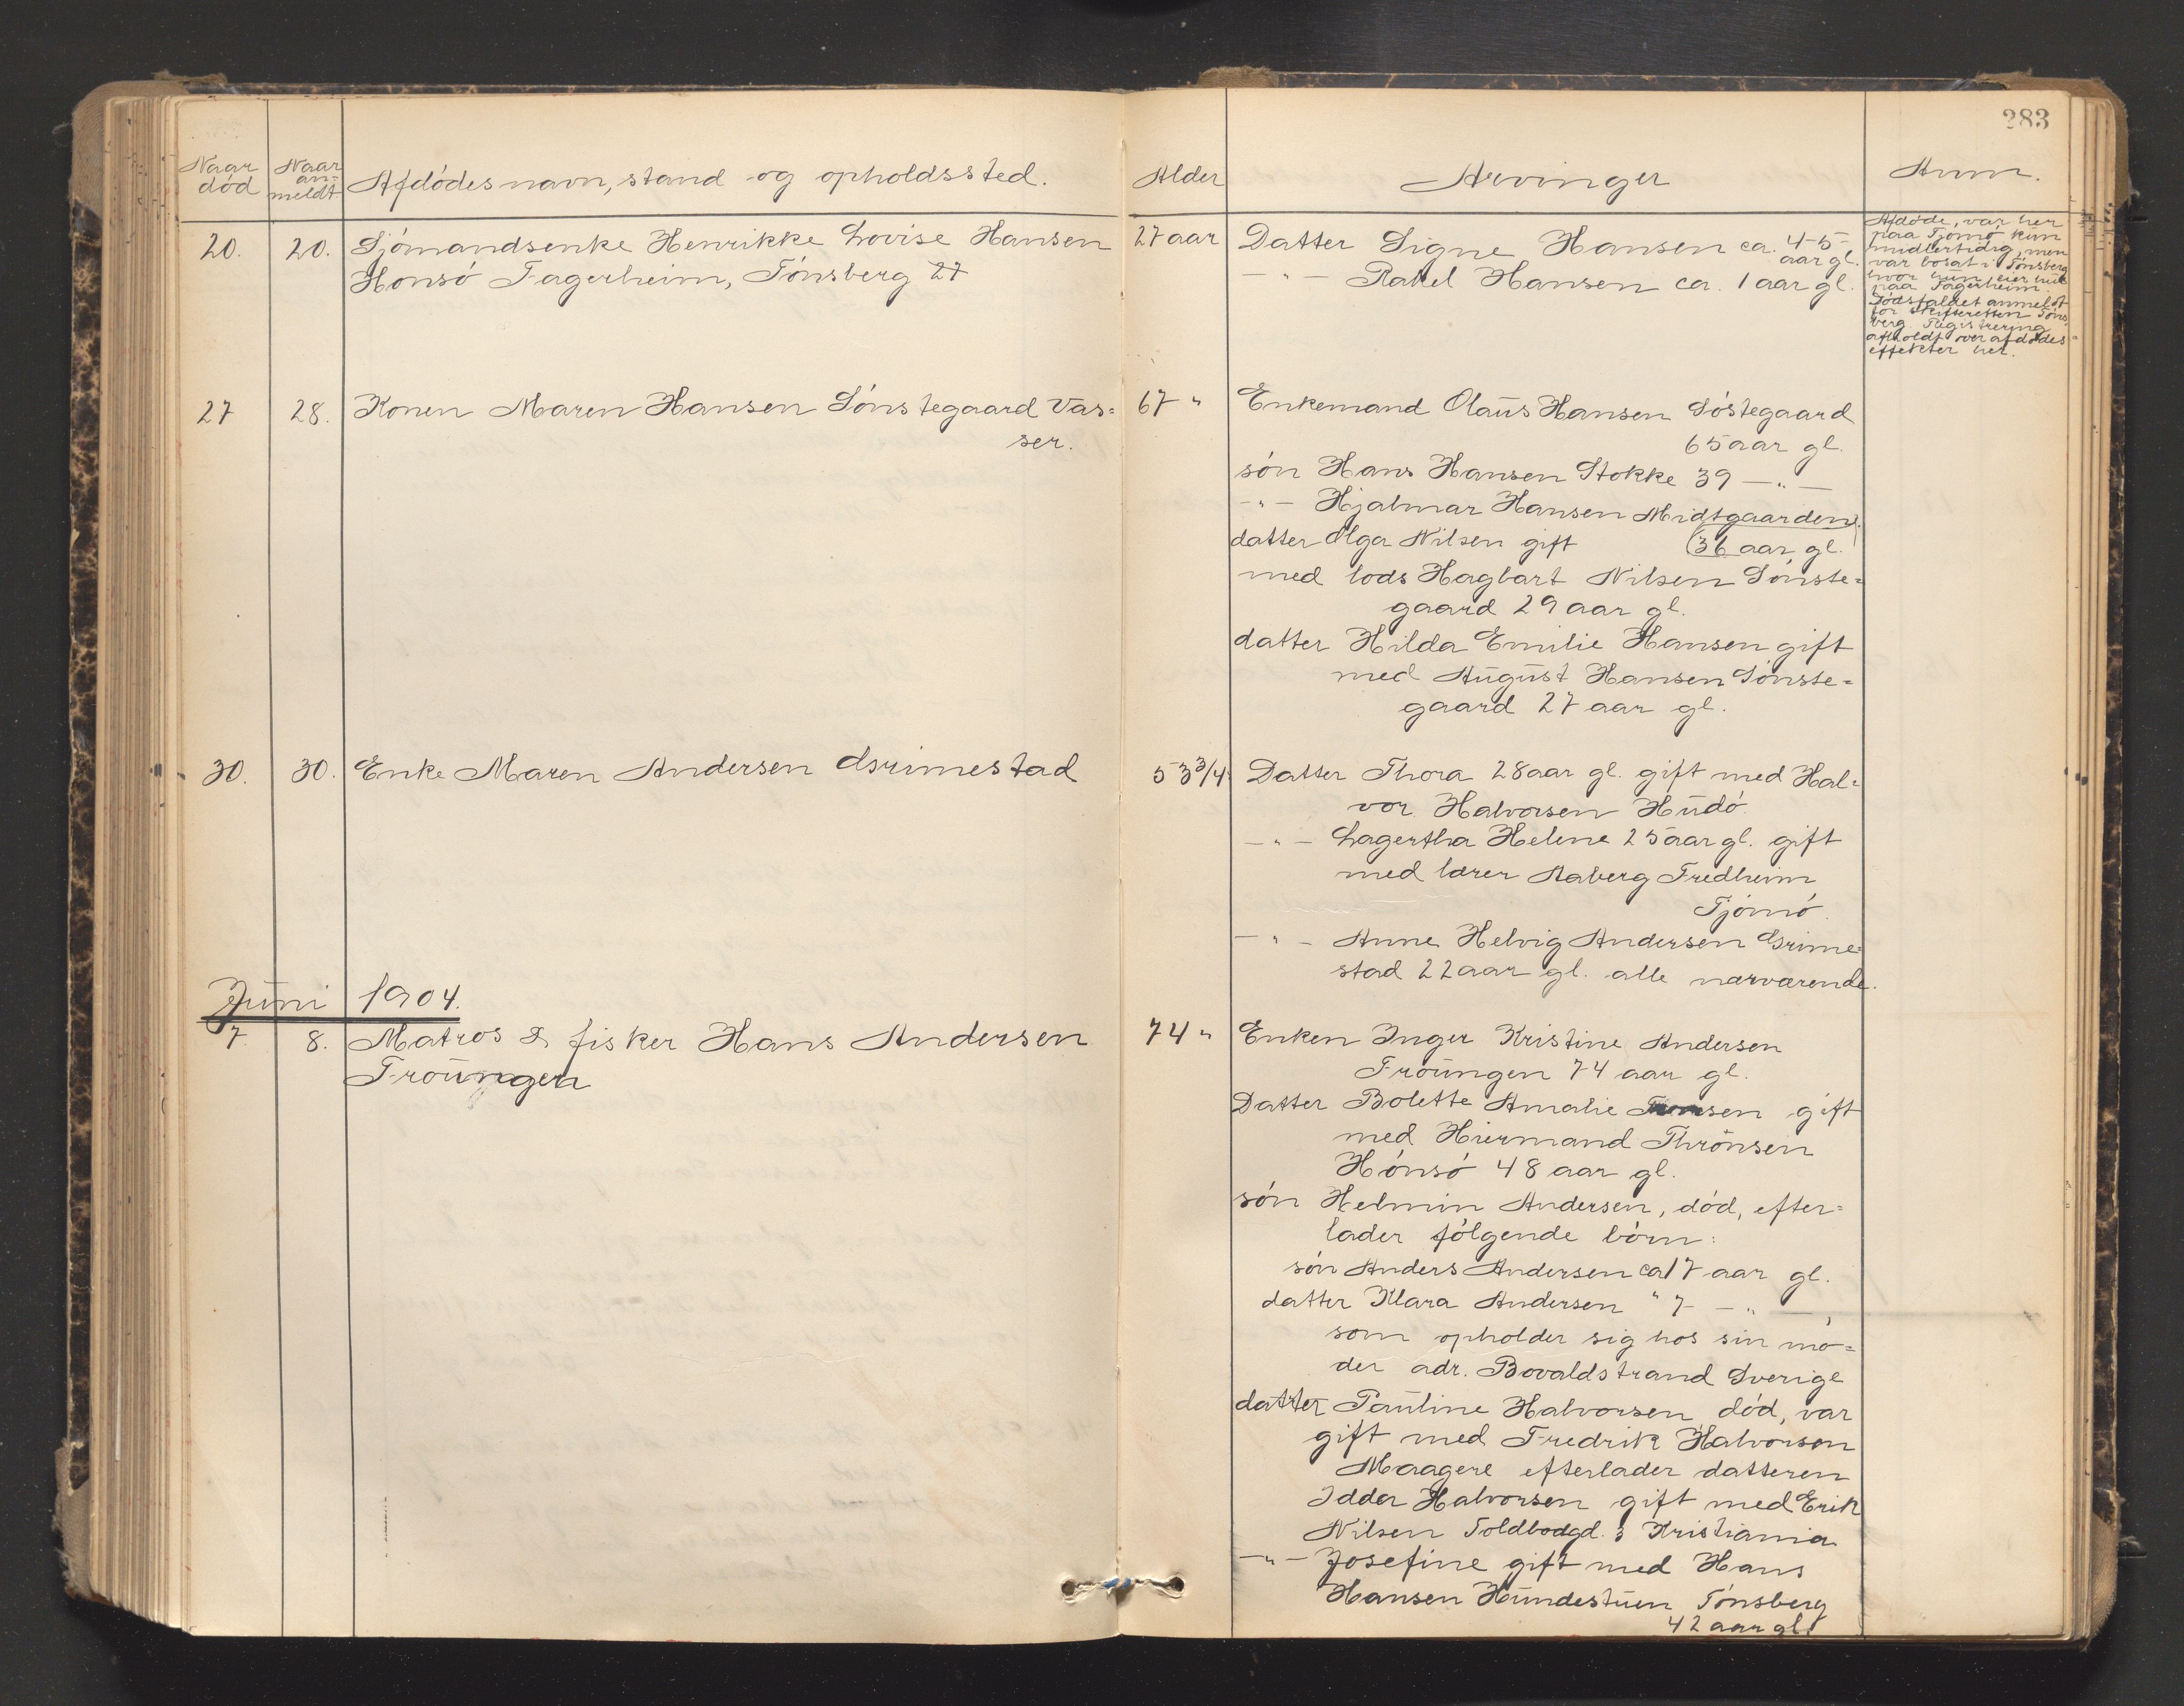 283
Naar død
Naar an- meldt.
Afdødes navn, stand og opholdssted.
Alder
Arvinger
Anm.
20.
20.
Sjömandsenke Henrikke Lovise Hansen
Honsö Fagerheim, Tönsberg 27
27 aar
Datter Signe Hansen ca. 4-5 aar gl.
-"- Rakel Hansen ca. 1 aar gl.
Afdöde, var her
paa Tjömö kun
midlertidig, men
var bosat i Tönsberg
hvor hun eier hus
paa Fagerheim.
Dödsfaldet anmeldt
for skifteretten Töns
berg. Registrering
afholdt over afdödes
effekter her.
27
28.
Konen Maren Hansen Sönstegaard Vas=
ser.
67 "
Enkemand Olaüs Hansen Söstegaard
65 aar gl.
sön Hans Hansen Stokke 39 -"-
-"- Hjalmar Hansen Midtgaarden
(36 aar gl.
datter Olga Nilsen gift
med lods Hagbart Nilsen Sönste=
gaard 29 aar gl.
datter Hilda Emilie Hansen gift
med Aügüst Hansen Sönste=
gaard 27 aar gl.
30.
30.
Enke Maren Andersen Grimestad
53 3/4
Datter Thora 28 aar gl. gift med Hal=
vor Halvorsen Hüdö.
-"- Lagertha Helene 25 aar gl. gift
med lærer Aaberg Fredheim
Tjömö.
-"- Anne Helvig Andersen Grime=
stad 22 aar gl. alle nærværende.
Jüni 1904.
7.
8.
Matros & fisker Hans Andersen
Troüngen
74 "
Enken Inger Kristine Andersen
Troüngen 74 aar gl.
Datter Bolette Amalie gift
med Hiermand Thrönsen
Hönsö 48 aar gl.
sön Helmin Andersen, död, efter=
lader fölgende börn:
sön Anders Andersen ca 17 aar gl.
datter Klara Andersen " 7 -"-,
som opholder sig hos sin mo=
der adr. Bovaldstrand Sverige
datter Paüline Halvorsen död, var
gift med Fredrik Halvorsen
Maagerö efterlader datteren
Idda Halvorsen gift med Erik
Nilsen Toldbodgd. 3 Kristiania
-"- Josefine gift med Hans
Hansen Hündestüen Tönsberg
42 aar gl.